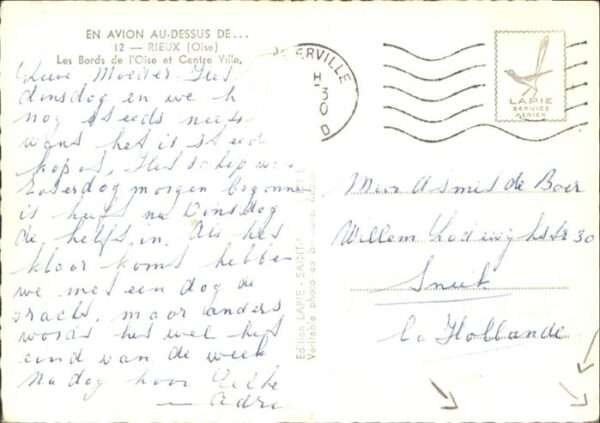 EN AVION AU-DESSUS DE...
12 — RIEUX (Oise)
Les Bords de l'Oise et Centre Ville.
Lieve Moeder
dinsdag en we h
nog steeds
want het is steeds
kapot, Het schip
Zaterdag morgen begonnen
is het nu Dinsdag
de helft in. Als het
klaar komt hebbe
we met een dag de
vracht, maar anders
wordt het wel het
eind van de week
Nu dag hoor
— Adri
ERVILLE
H
3
0
D
LAPIE
SERVICE
AERIEN
Edition LAPIE - SAINT
Véritable photo au
Mevr A Smit de Boer
Willem Lodewijkstr 30
la Hollande